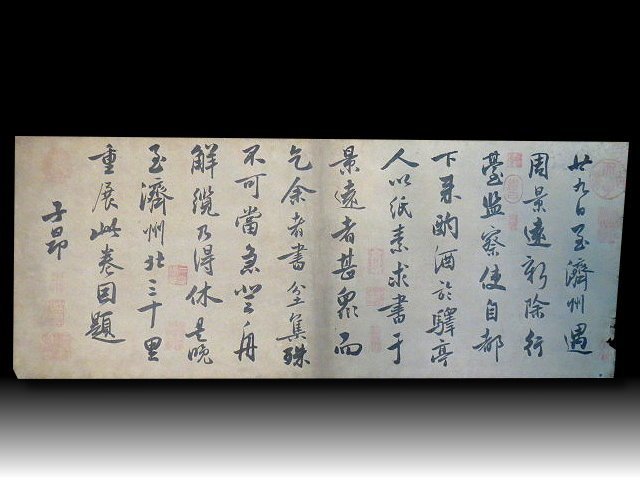 廿九日至濟州遇
周景遠新除行
臺監察使自都
下来酌酒於驛亭
人以紙素求書于
景遠者甚衆而
乞余者書坌集殊
不可當急登舟
解纜乃得休是晚
至濟州北三十里
重展此卷因題
子昂